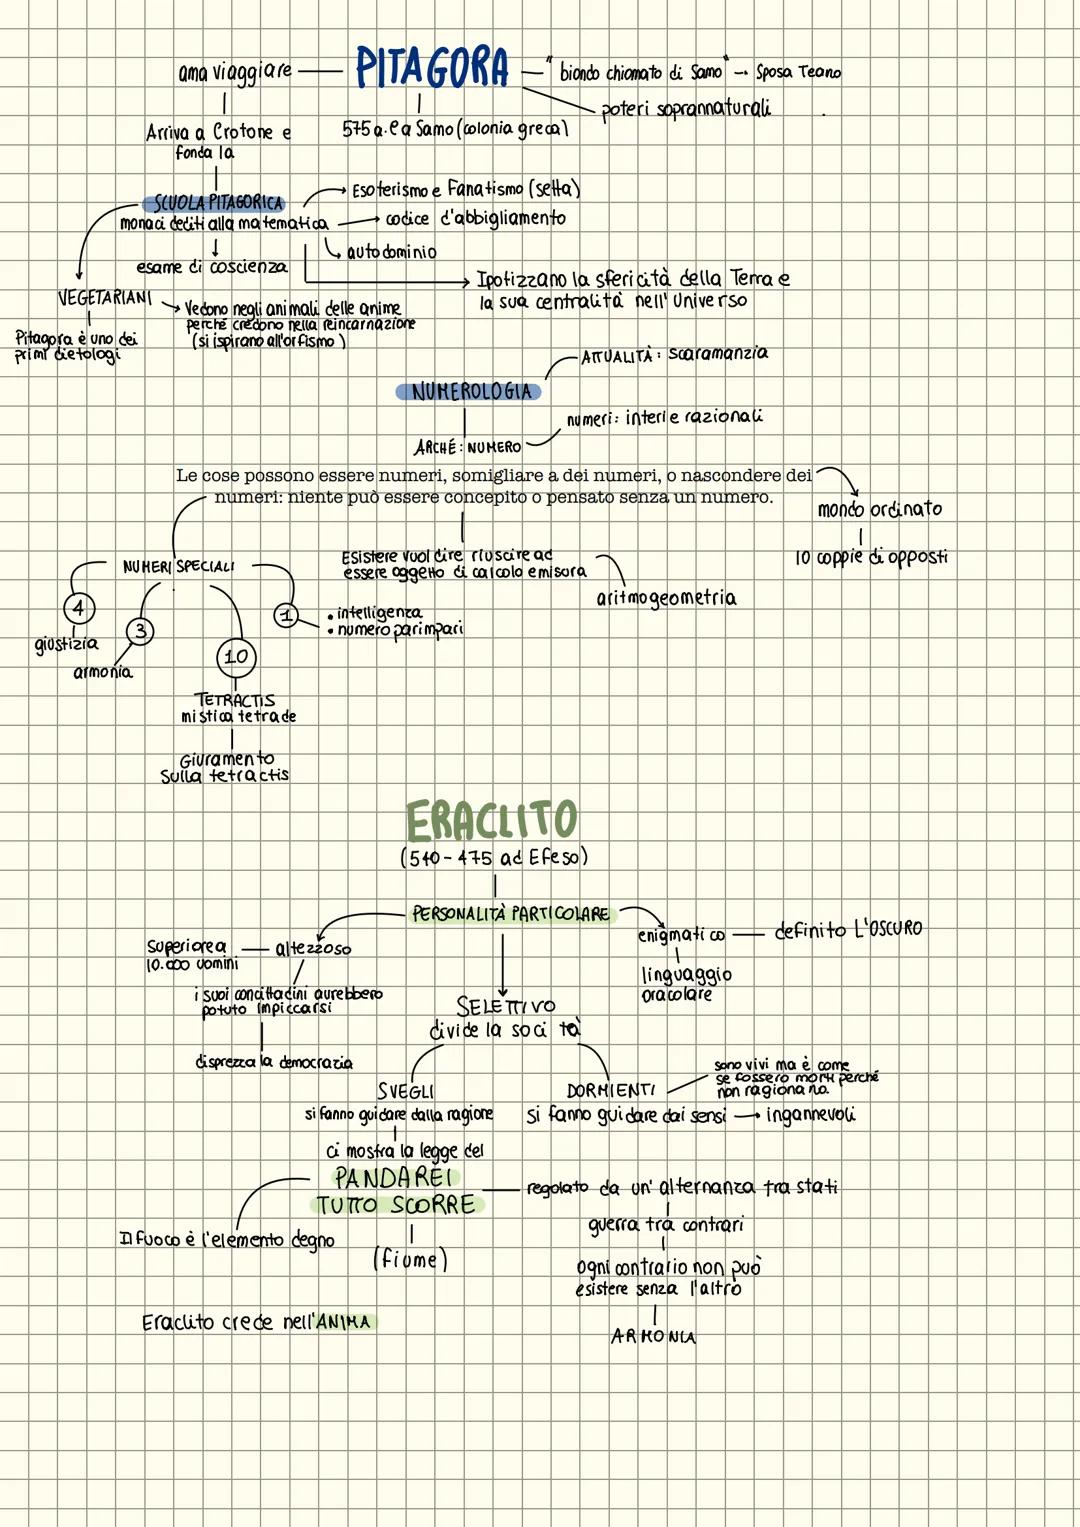 PITAGORA
ama viaggiare
"biondo chiomato di Samo" → Sposa Teano
poteri soprannaturali
575 a.C a Samo (colonia greca)
Arriva a Crotone e
fonda la
SCUOLA PITAGORICA
monaci dediti alla matematica
Esoterismo e Fanatismo (setta)
codice d'abbigliamento
autodominio
esame di coscienza
Ipotizzano la sfericità della Terra e
la sua centralità nell'Universo
VEGETARIANI
Vedono negli animali delle anime
perché credono nella reincarnazione
(si ispirano all'orfismo)
Pitagora è uno dei
primi dietologi
ATTUALITÀ: scaramanzia
NUMEROLOGIA
numeri: interi e razionali
ARCHÉ: NUMERO
Le cose possono essere numeri, somigliare a dei numeri, o nascondere dei
numeri: niente può essere concepito o pensato senza un numero.
mondo ordinato
10 coppie di opposti
Esistere vuol dire riuscire ad
essere oggetto di calcolo e misura
aritmogeometria
NUMERI SPECIALI
4
giustizia
3
armonia
10
1
• intelligenza
• numero parimpari
TETRACTIS
mistica tetrade
Giuramento
Sulla tetractis
ERACLITO
(540-475 ad Efeso)
PERSONALITÀ PARTICOLARE
Superiore a
10.000 uomini
altezzoso
enigmatico
definito L'OSCURO
linguaggio
oracolare
i suoi concittadini avrebbero
potuto impiccarsi
disprezza la democrazia
SELETTIVO
divide la soci tà
SVEGLI
si fanno guidare dalla ragione
DORMIENTI
si fanno guidare dai sensi → ingannevoli
sono vivi ma è come
se fossero morti perché
non ragionano.
ci mostra la legge del
PANDAREI
TUTTO SCORRE
regolato da un'alternanza tra stati
guerra tra contrari
ogni contrario non può
esistere senza l'altro
ARMONIA
Il fuoco è l'elemento degno
(fiume)
Eraclito crede nell'ANIMA